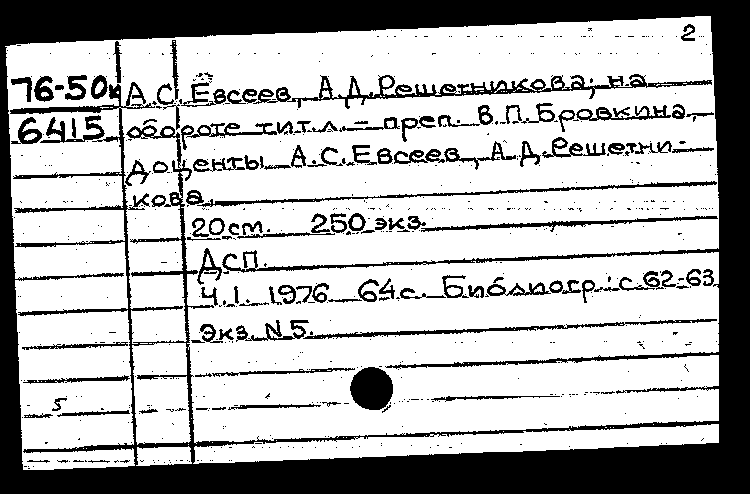 2
76-50к А.С. Евсеев, А.Д. Решетникова; на
6415 обороте тит.л. - преп. В.П. Бровкина,
доценты А.С. Евсеев, А.Д. Решетни-
кова.
20 см. 250 экз.
ДСП.
Ч.1. 1976 64 с. Библиогр.: с. 62-63
Экз. N 5.
5